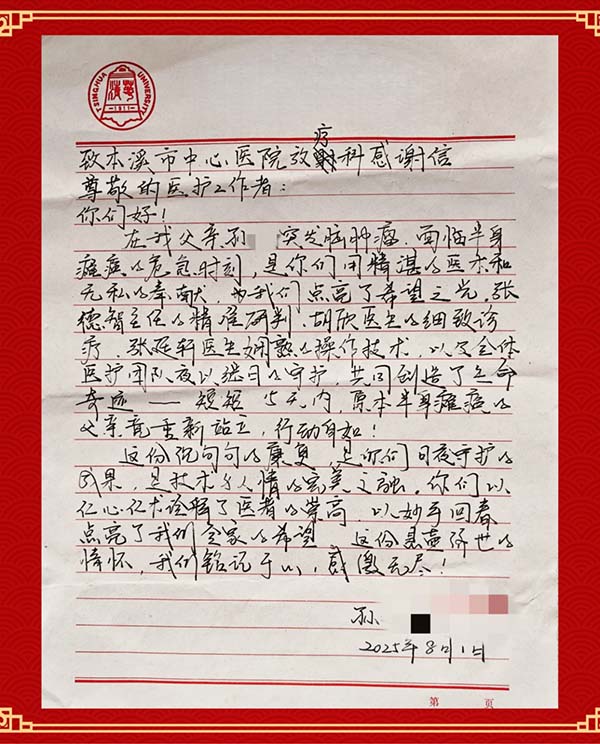 TSINGHUA UNIVERSITY
清華
1911
致本溪市中心医院放疗科感谢信
尊敬的医护工作者：
你们好！
在我父亲孙 突发脑肿瘤、面临半身
瘫痪的危急时刻，是你们用精湛的医术和
无私的奉献，为我们点亮了希望之光。张
德智主任的精准研判、胡欣医生的细致诊
疗、张延轩医生娴熟的操作技术，以及全体
医护团队夜以继日的守护，共同创造了生命
奇迹——短短5天内，原本半身瘫痪的
父亲竟重新站立，行动自如！
这份沉甸甸的康复，是你们日夜守护的
成果，是技术与人情的完美之融。你们以
仁心仁术诠释了医者的崇高，以妙手回春
点亮了我们全家的希望。这份悬壶济世的
情怀，我们铭记于心，感激无尽！
孙
2025年8月1日
第 页